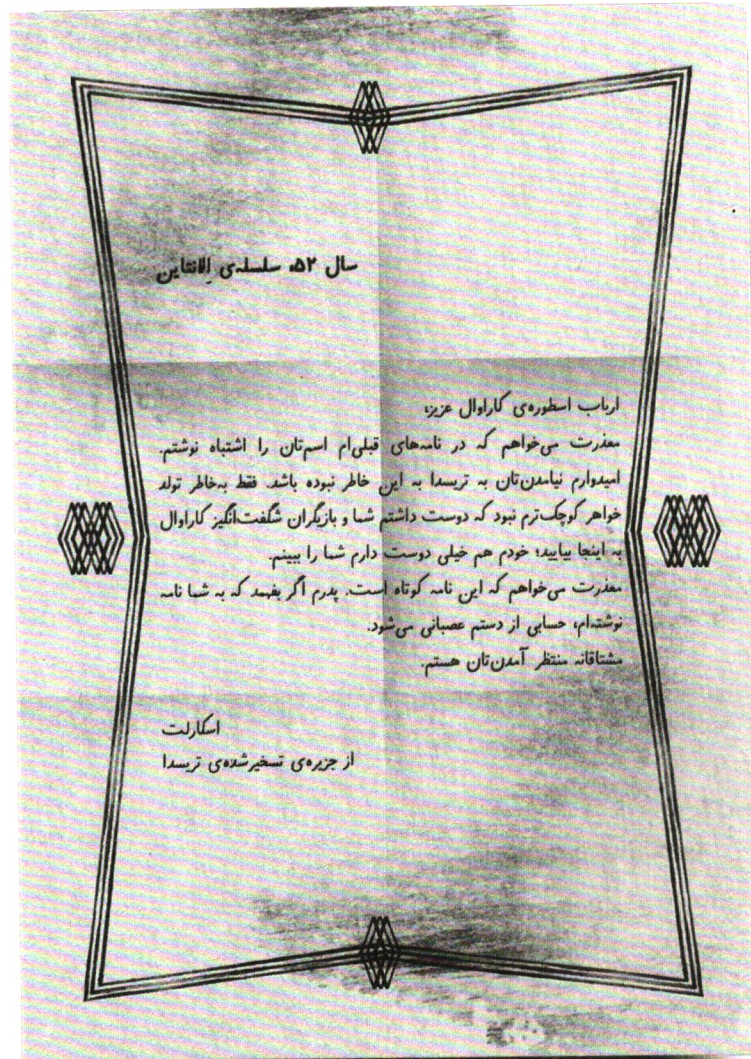 سال ۵۲، سلسله‌ی اِلانتاین
ارباب اسطوره‌ی کاراوال عزیز،
معذرت می‌خواهم که در نامه‌های قبلی‌ام اسم‌تان را اشتباه نوشتم.
امیدوارم نیامدن‌تان به تریسدا به این خاطر نبوده باشد. فقط به‌خاطر تولد
خواهر کوچک‌ترم نبود که دوست داشتم شما و بازیگران شگفت‌انگیز کاراوال
به اینجا بیایید؛ خودم هم خیلی دوست دارم شما را ببینم.
معذرت می‌خواهم که این نامه کوتاه است. پدرم اگر بفهمد که به شما نامه
نوشته‌ام، حسابی از دستم عصبانی می‌شود.
مشتاقانه منتظر آمدن‌تان هستم.
اسکارلت
از جزیره‌ی تسخیرشده‌ی تریسدا